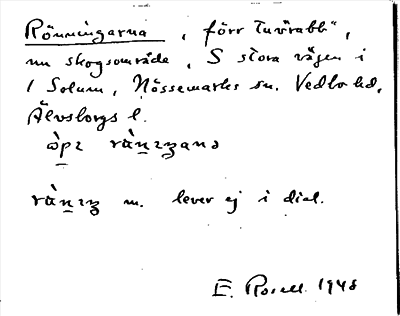 Rönningarna, förr "Tuvrabb",
nu skogsområde, S stora vägen i
1 Solum, Nössemarks sn. Vedbo hd,
Älvsborgs l.
m. lever ej i dial.
E. Rosell 1948